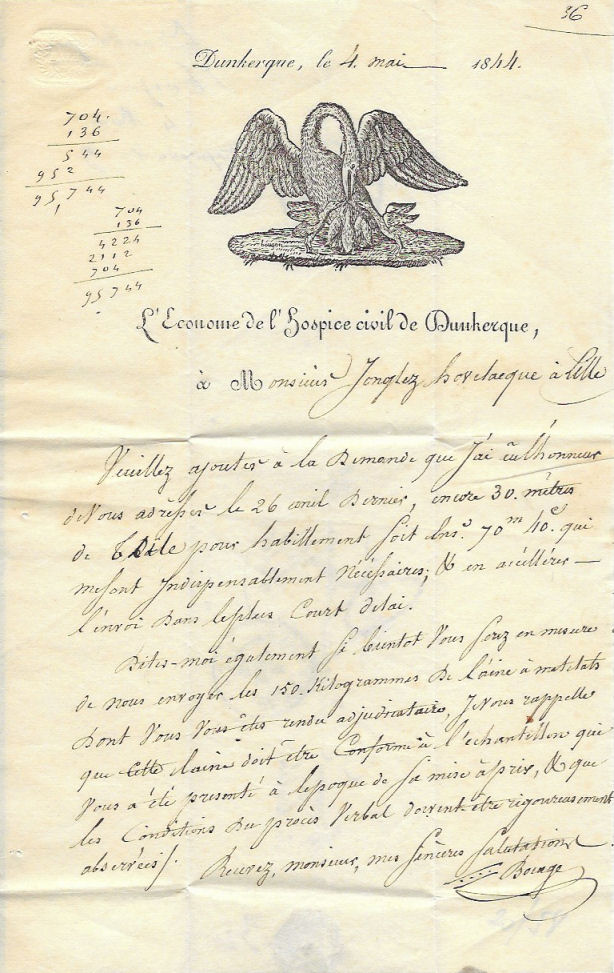 36
Dunkerque, le 4. mai 1844.
704.
136
544
952
95744
1
704
136
4224
2112
704
95744
L'Econome de l'Hospice civil de Dunkerque,
à Monsieur Jonglez hovelacque à Lille
Veuillez ajouter à la Demande que J'ai eu l'honneur
de Vous adresser le 26 avril Dernier, encore 30. mètres
de Toile pour habillement soit Ens. 70m 40c qui
me sont Indispensablement Nécéssaires, & en accéllérer
l'envoi Dans le plus Court délai.
Dites-moi également si bientot Vous serez en mésure
de nous envoyer les 150. Kilogrammes De laine à matelats
Dont Vous Vous êtes rendu adjudicataire, Je Vous rappelle
que Cette laine doit être Conforme à l'échantillon qui
Vous a été presenté à l'epoque de sa mise à prix, & que
les Conditions Du procès Verbal doivent être rigoureusement
observées/.
Recevez, monsieur, mes sincères Salutations